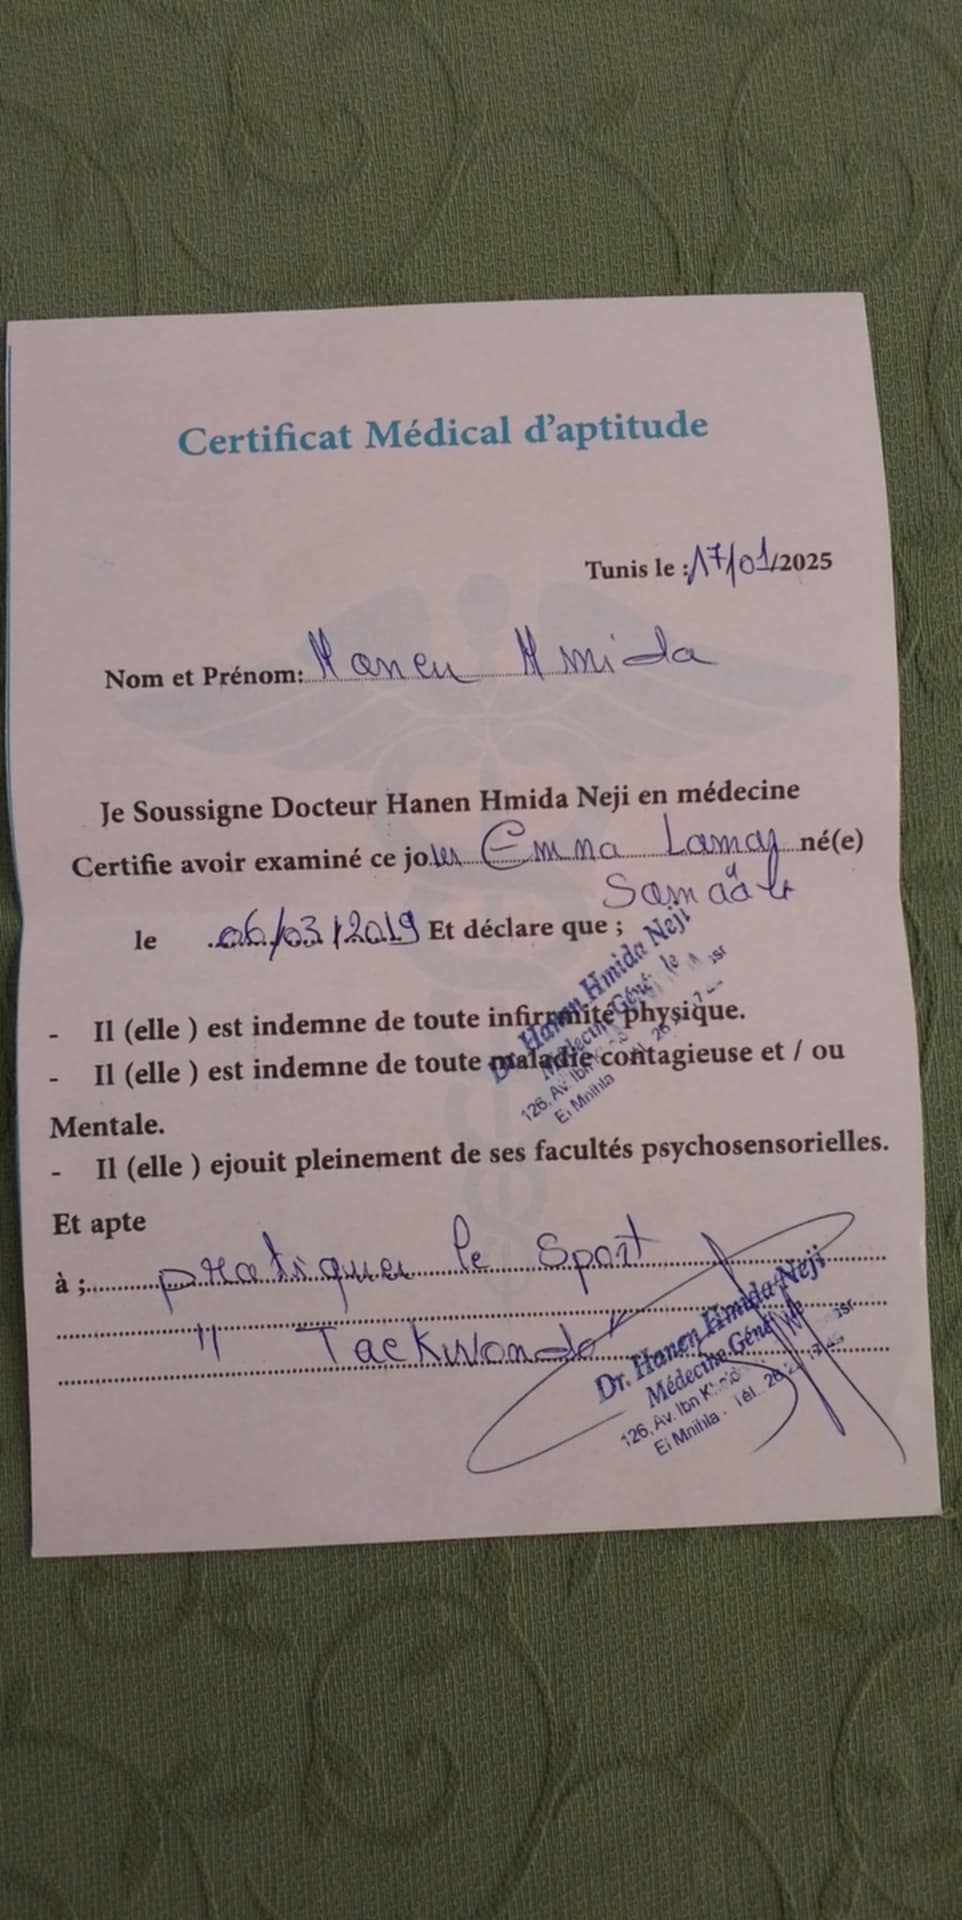 Certificat Médical d'aptitude
Tunis le : 17/01/2025
Nom et Prénom: Hanen Hmida
Je Soussigne Docteur Hanen Hmida Neji en médecine
Certifie avoir examiné ce jo Emna Lamar né(e)
le 06/03/2019 Et déclare que ;
- Il (elle ) est indemne de toute infirmité physique.
- Il (elle ) est indemne de toute maladie contagieuse et / ou
Mentale.
- Il (elle ) ejouit pleinement de ses facultés psychosensorielles.
Et apte
à ; pratiquer le Sport
" Taekwondo "
Hanen Hmida Neji
126, Av. Ibn
El Mnihla
Dr. Hanen Hmida Neji
Médecine Géné
126, Av. Ibn
El Mnihla - Tél.